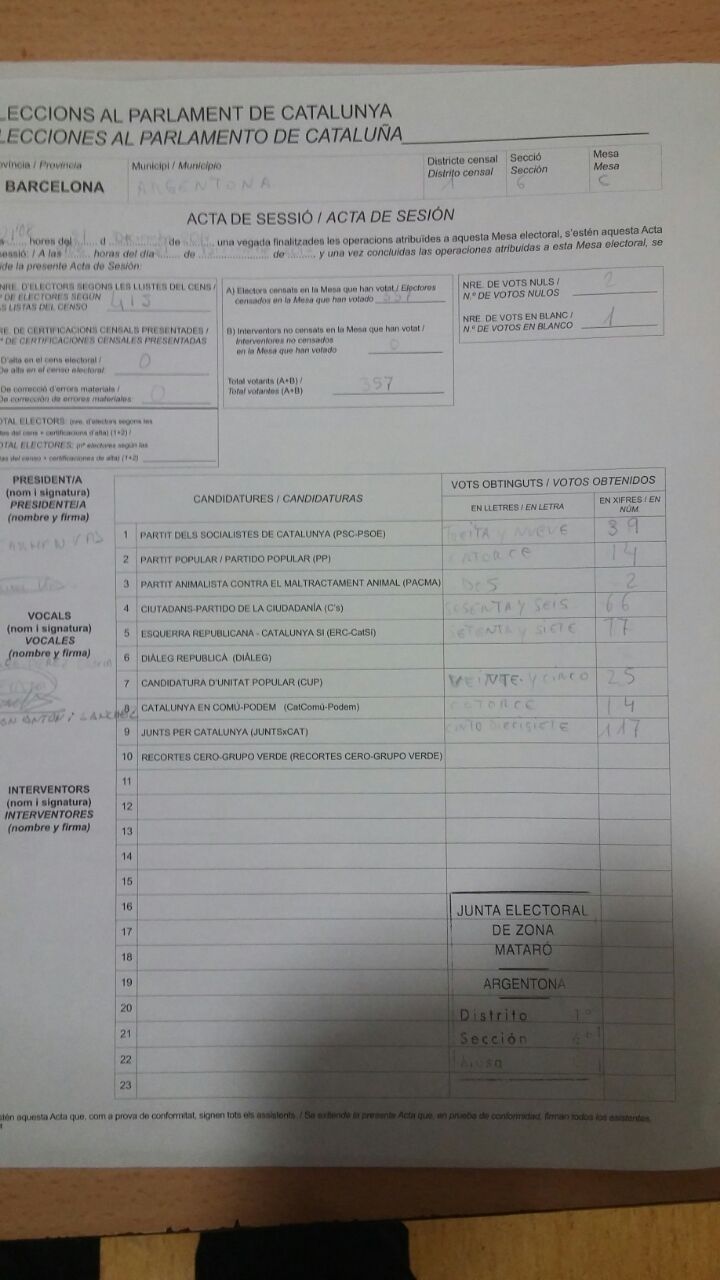 LECCIONS AL PARLAMENT DE CATALUNYA
LECCIONES AL PARLAMENTO DE CATALUÑA
ovíncia / Provincia
BARCELONA
Municipi / Municipio
ARGENTONA
Districte censal
Distrito censal
1
Secció
Sección
6
Mesa
Mesa
C
ACTA DE SESSIÓ / ACTA DE SESIÓN
hores del d de una vegada finalitzades les operacions atribuïdes a aquesta Mesa electoral, s'estén aquesta Acta
sessió: / A las horas del día de de y una vez concluidas las operaciones atribuidas a esta Mesa electoral, se
de la presente Acta de Sesión:
NRE. D'ELECTORS SEGONS LES LLISTES DEL CENS /
º DE ELECTORES SEGÚN
S LISTAS DEL CENSO
E. DE CERTIFICACIONS CENSALS PRESENTADES /
º DE CERTIFICACIONES CENSALES PRESENTADAS
D'alta en el cens electoral /
De alta en el censo electoral:
0
De correcció d'errors materials /
De corrección de errores materiales:
0
OTAL ELECTORS: (nre. d'electors segons les
tes del cens + certificacions d'alta) (1+2) /
OTAL ELECTORES: (nº electores según las
tas del censo + certificaciones de alta) (1+2)
A) Electors censats en la Mesa que han votat / Electores
censados en la Mesa que han votado
357
B) Interventors no censats en la Mesa que han votat /
Interventores no censados
en la Mesa que han votado
0
Total votants (A+B) /
Total votantes (A+B)
357
NRE. DE VOTS NULS /
N.º DE VOTOS NULOS
2
NRE. DE VOTS EN BLANC /
N.º DE VOTOS EN BLANCO
1
PRESIDENT/A
(nom i signatura)
PRESIDENTE/A
(nombre y firma)
VOCALS
(nom i signatura)
VOCALES
(nombre y firma)
INTERVENTORS
(nom i signatura)
INTERVENTORES
(nombre y firma)
CANDIDATURES / CANDIDATURAS
VOTS OBTINGUTS / VOTOS OBTENIDOS
EN LLETRES / EN LETRA
EN XIFRES / EN NÚM
1 PARTIT DELS SOCIALISTES DE CATALUNYA (PSC-PSOE) Y NUEVE 39
2 PARTIT POPULAR / PARTIDO POPULAR (PP) CATORCE 14
3 PARTIT ANIMALISTA CONTRA EL MALTRACTAMENT ANIMAL (PACMA) DOS 2
4 CIUTADANS-PARTIDO DE LA CIUDADANÍA (C's) SESENTA Y SEIS 66
5 ESQUERRA REPUBLICANA - CATALUNYA SÍ (ERC-CatSí) SETENTA Y SIETE 77
6 DIÀLEG REPUBLICÀ (DIÀLEG)
7 CANDIDATURA D'UNITAT POPULAR (CUP) VEINTE Y CINCO 25
8 CATALUNYA EN COMÚ-PODEM (CatComú-Podem) CATORCE 14
9 JUNTS PER CATALUNYA (JUNTSxCAT) 117
10 RECORTES CERO-GRUPO VERDE (RECORTES CERO-GRUPO VERDE)
11
12
13
14
15
16
17
18
19
20
21
22
23
JUNTA ELECTORAL
DE ZONA
MATARÓ
ARGENTONA
Distrito 1º
Sección 6ª
Mesa
stén aquesta Acta que, com a prova de conformitat, signen tots els assistents. / Se extiende la presente Acta que, en prueba de conformidad, firman todos los asistentes.